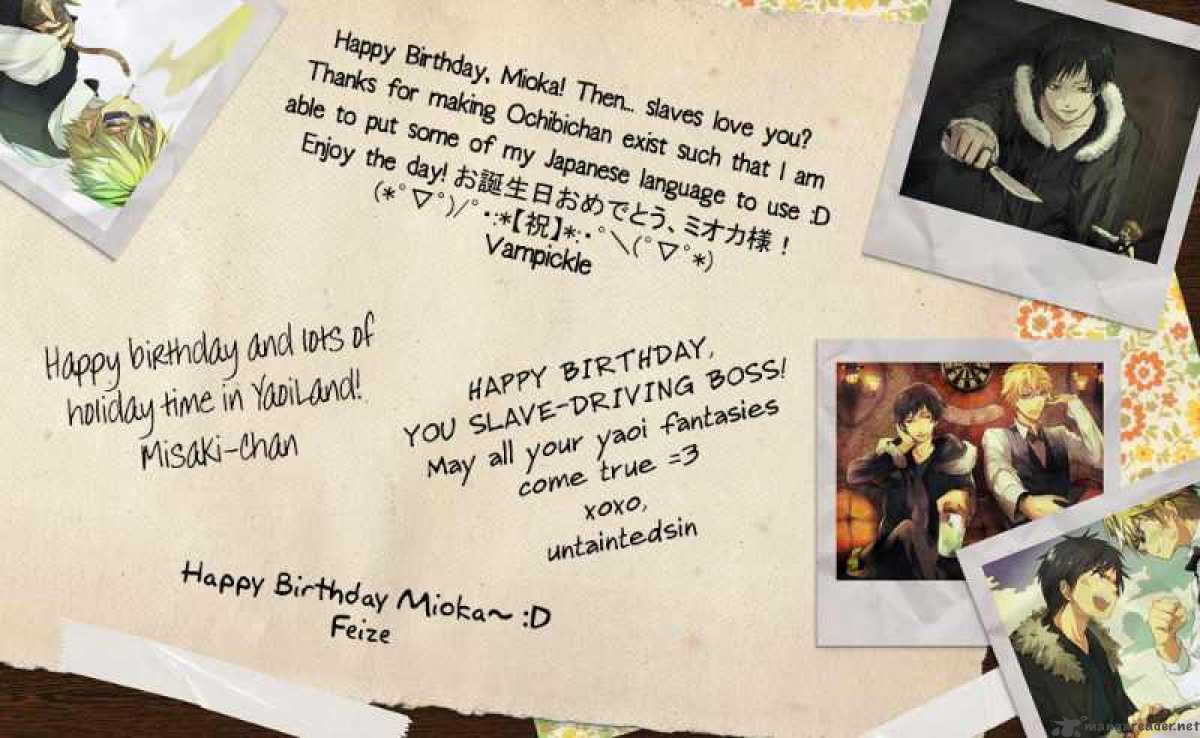 Happy Birthday, Mioka! Then... slaves love you?
Thanks for making Ochibichan exist such that I am
able to put some of my Japanese language to use :D
Enjoy the day! お誕生日おめでとう、ミオカ様！
(*ﾟ▽ﾟ)/ﾟ･:*【祝】*:･ﾟ＼(ﾟ▽ﾟ*)
Vampickle
Happy birthday and lots of
holiday time in YaoiLand!
Misaki-chan
HAPPY BIRTHDAY,
YOU SLAVE-DRIVING BOSS!
May all your yaoi fantasies
come true =3
xoxo,
untaintedsin
Happy Birthday Mioka~ :D
Feize
mangareader.net